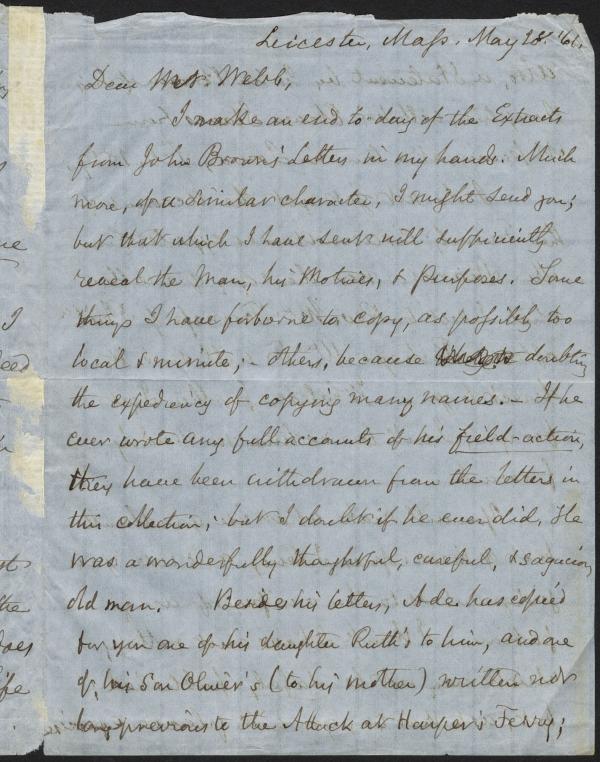 Leicester, Mass. May 28. '61.
Dear Mr. Webb,
I make an end to-day of the Extracts
from John Brown's Letters in my hands. Much
more, of a similar character, I might send you;
but that which I have sent will sufficiently
reveal the Man, his Motives, & Purposes. Some
things I have forborne to copy, as possibly too
local & minute; - others, because doubting
the expediency of copying many names. - If he
ever wrote any full accounts of his field-action,
they have been withdrawn from the letters in
this collection; but I doubt if he ever did. He
was a wonderfully thoughtful, careful, & sagacious
old man. Beside his letters, Ade. has copied
for you one of his daughter Ruth's to him, and one
of his Son Oliver's (to his mother) written not
long previous to the Attack at Harper's Ferry;
I
the